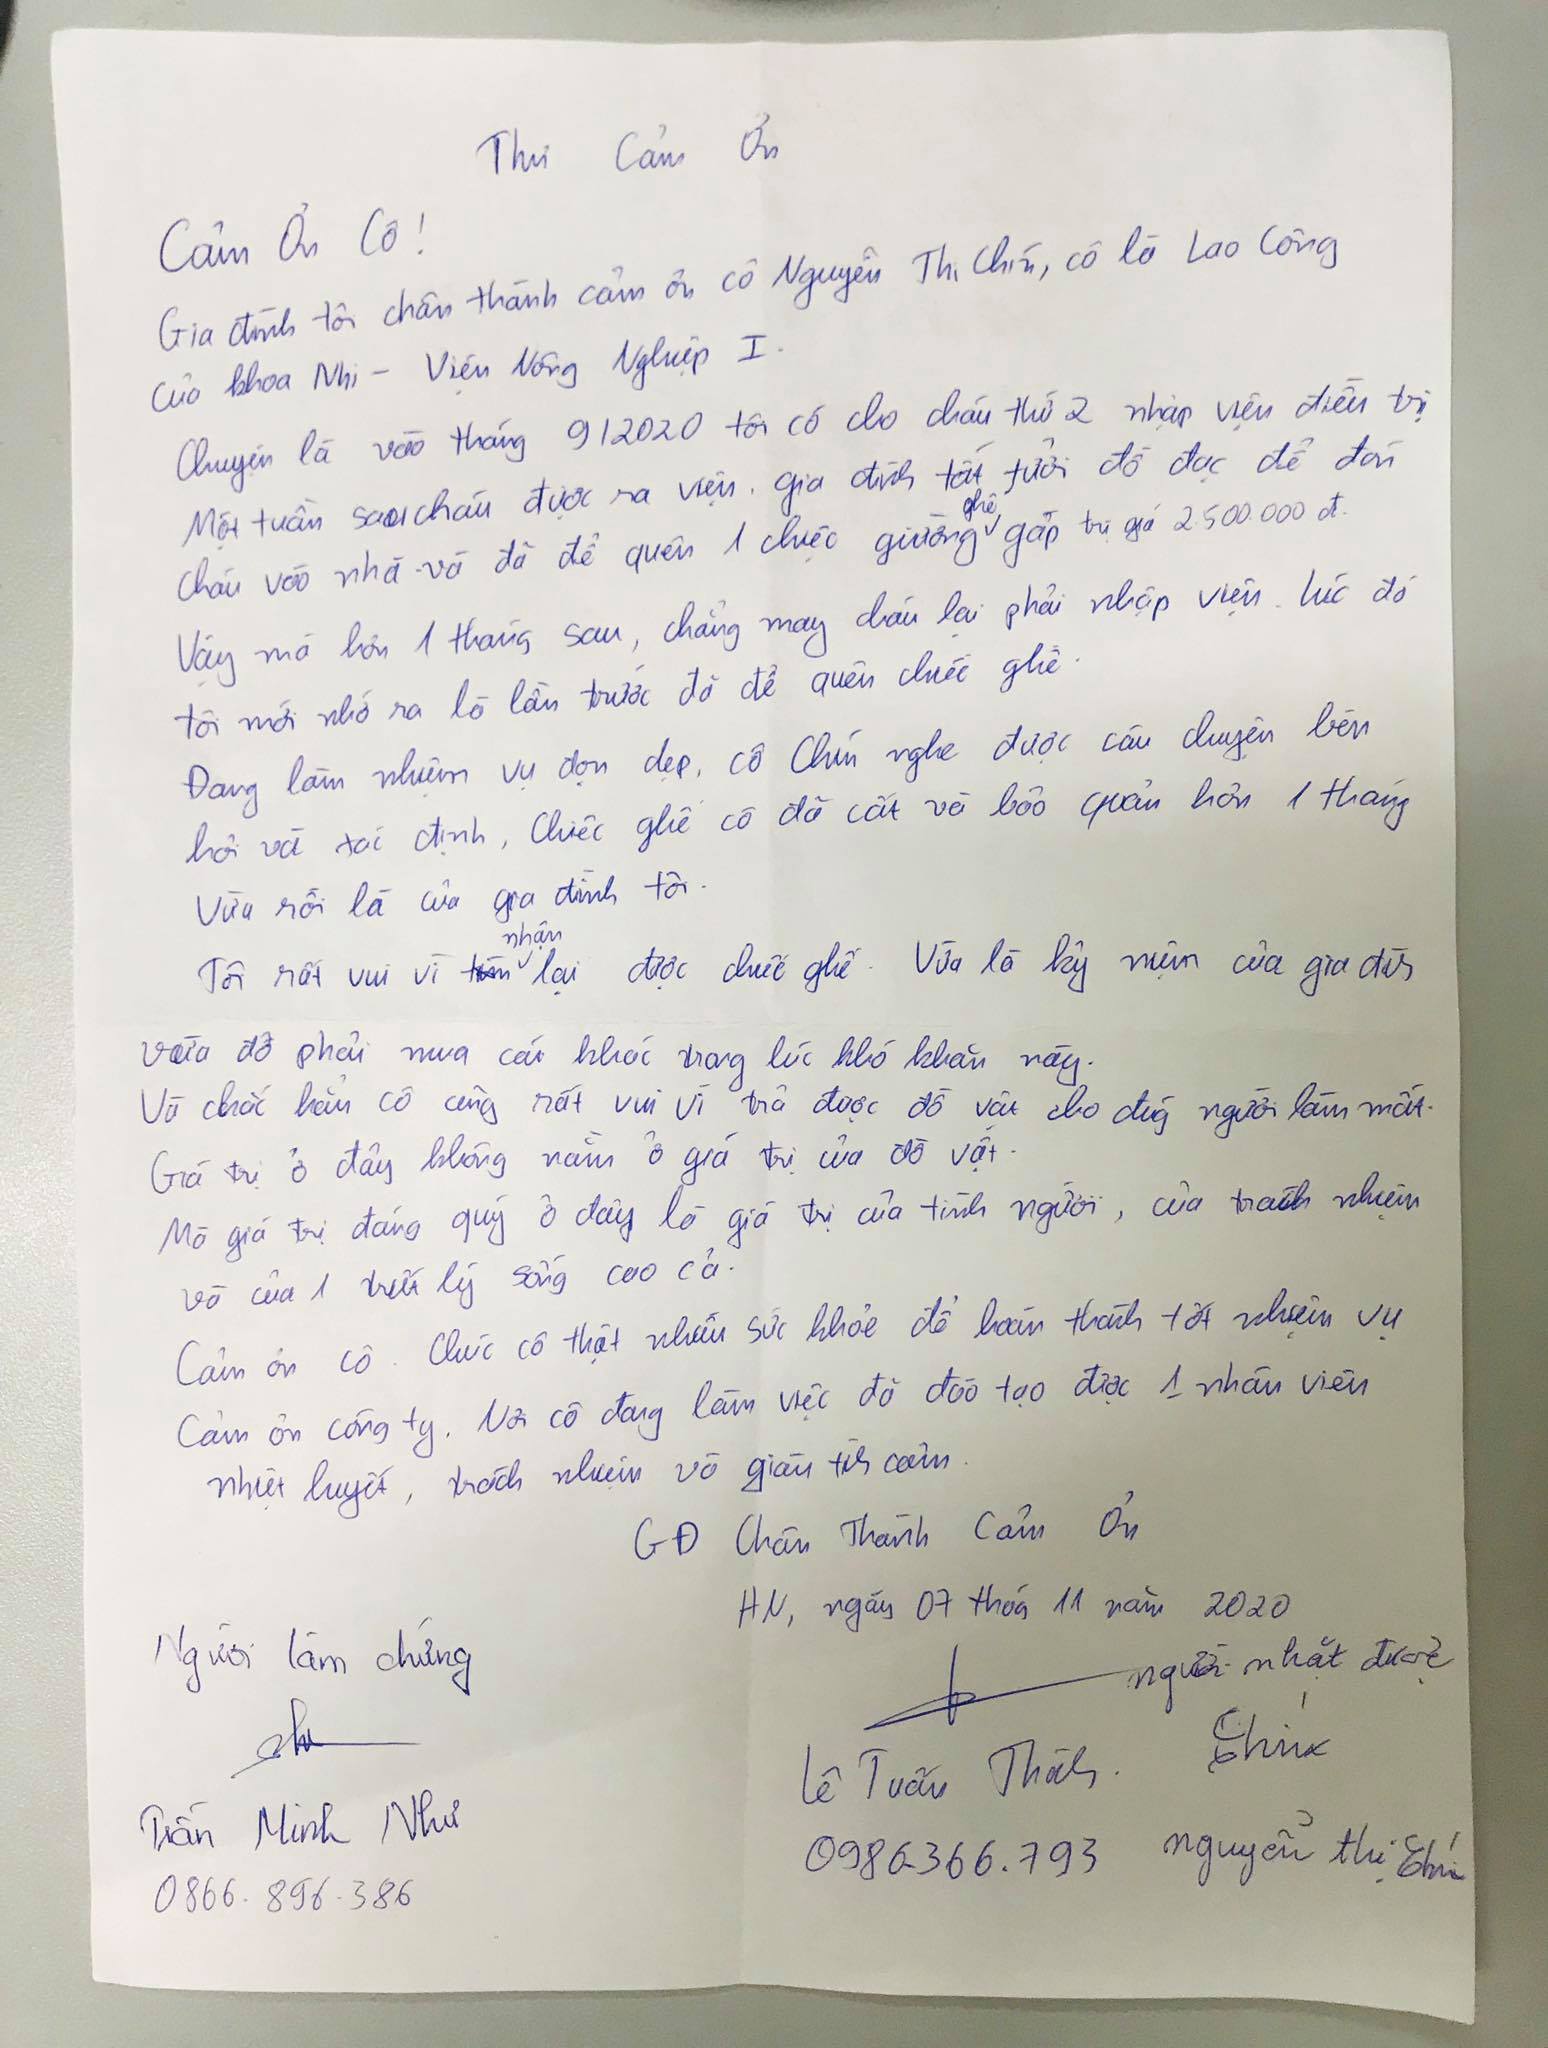 Thư Cảm Ơn
Cảm Ơn Cô!
Gia đình tôi chân thành cảm ơn cô Nguyễn Thị Chín, cô là Lao Công
của khoa Nhi - Viện Nông Nghiệp I.
Chuyện là vào tháng 9/2020 tôi có cho cháu thứ 2 nhập viện điều trị
Một tuần sau cháu được ra viện. gia đình tất tưởi đồ đạc để đón
cháu vào nhà và đã để quên 1 chiếc giường ghế gấp trị giá 2.500.000 đ.
Vậy mà hơn 1 tháng sau, chẳng may cháu lại phải nhập viện. lúc đó
tôi mới nhớ ra là lần trước đã để quên chiếc ghế.
Đang làm nhiệm vụ dọn dẹp, cô Chín nghe được câu chuyện bèn
hỏi và xác định, chiếc ghế cô đã cất và bảo quản hơn 1 tháng
vừa rồi là của gia đình tôi.
Tôi rất vui vì nhận lại được chiếc ghế. Vừa là kỷ niệm của gia đình
vừa đỡ phải mua cái khác trong lúc khó khăn này.
Và chắc hẳn cô cũng rất vui vì trả được đồ vật cho đúng người làm mất.
Giá trị ở đây không nằm ở giá trị của đồ vật.
Mà giá trị đáng quý ở đây là giá trị của tình người, của trách nhiệm
và của 1 triết lý sống cao cả.
Cảm ơn cô. Chúc cô thật nhiều sức khỏe để hoàn thành tốt nhiệm vụ
Cảm ơn công ty. Nơi cô đang làm việc đã đào tạo được 1 nhân viên
nhiệt huyết, trách nhiệm và giàu tình cảm.
GĐ Chân Thành Cảm Ơn
HN, ngày 07 tháng 11 năm 2020
Người làm chứng
người nhặt được
Chín
Lê Tuấn Thành.
Trần Minh Như
0986.366.793
nguyễn thị Chín
0866.896.386